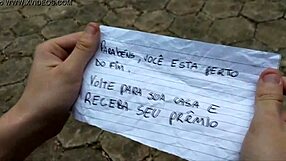 WWW.XVIDEOS.COM
PARABENS, VOCÊ ESTA PERTO
DO FIM.
VOLTE PARA SUA CASA E
RECEBA SEU PRÊMIO